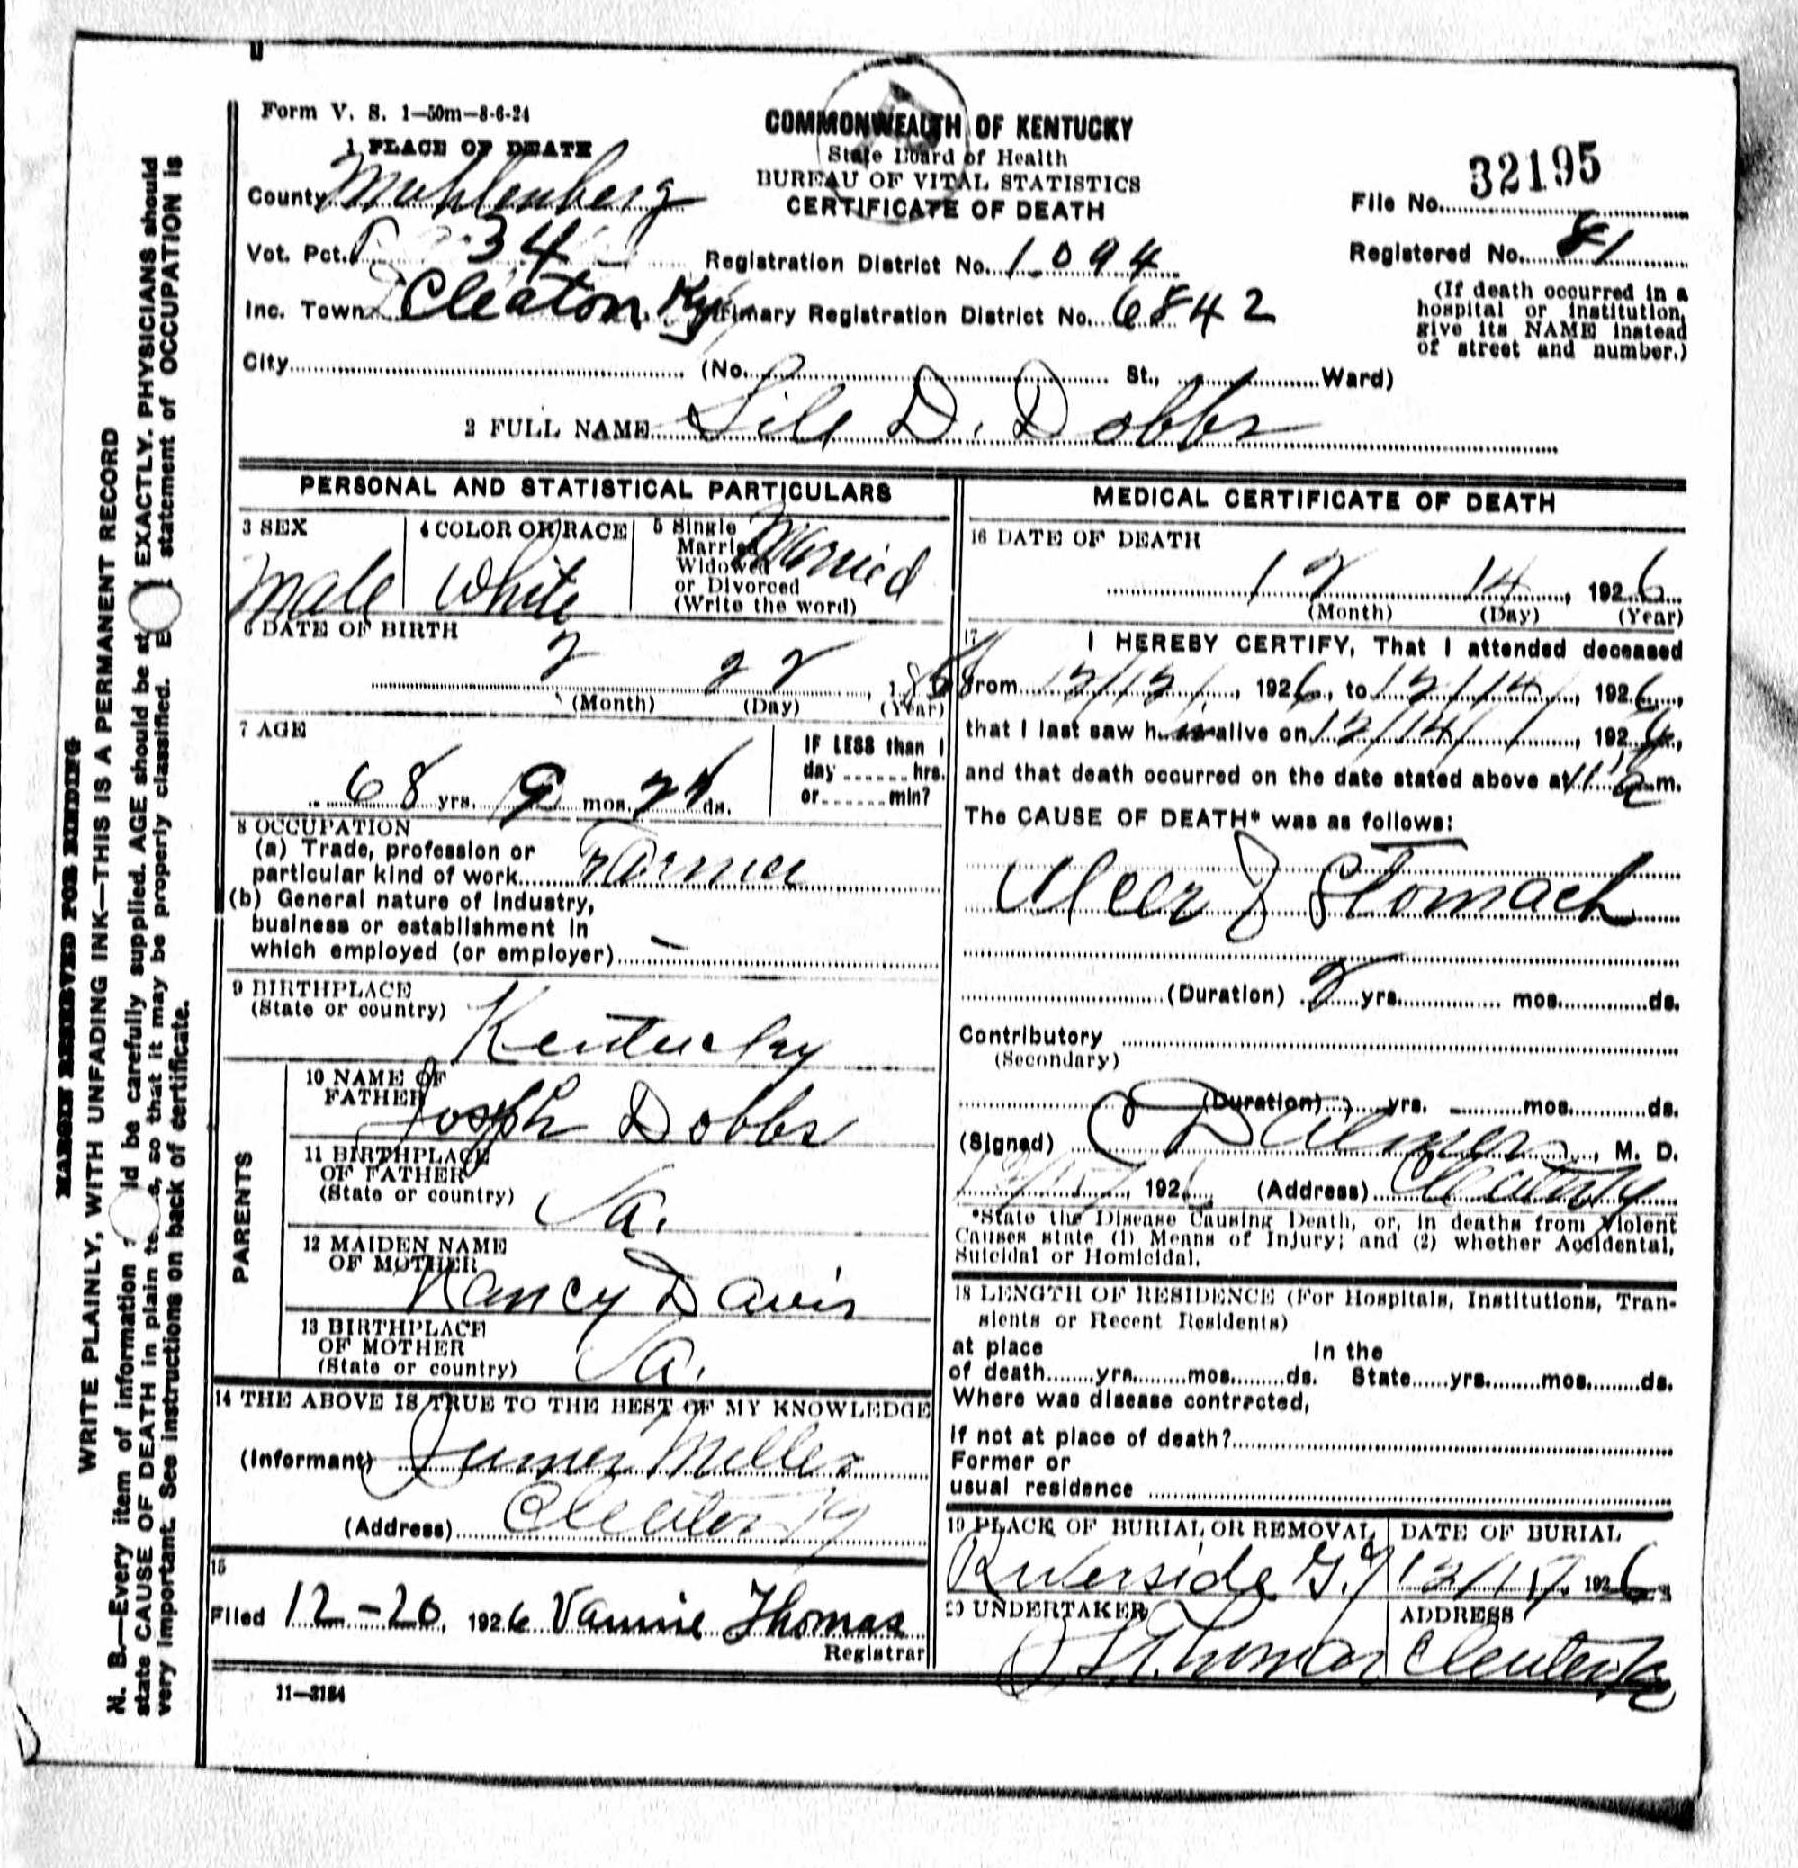 Form V. S. 1—50m—8-6-24
COMMONWEALTH OF KENTUCKY
State Board of Health
BUREAU OF VITAL STATISTICS
CERTIFICATE OF DEATH
1 PLACE OF DEATH
County Muhlenberg
Vot. Pct. 34
Inc. Town Cleaton, Ky
Registration District No. 1094
Primary Registration District No. 6842
File No. 32195
Registered No. 81
(If death occurred in a
hospital or institution,
give its NAME instead
of street and number.)
City (No. St., Ward)
2 FULL NAME D. Dobbs
PERSONAL AND STATISTICAL PARTICULARS
3 SEX
Male
4 COLOR OR RACE
White
5 Single
Married
Widowed
or Divorced
(Write the word)
Married
6 DATE OF BIRTH
2 22
(Month) (Day) (Year)
7 AGE
68 yrs. 9 mos. ds.
IF LESS than 1
day ...... hrs.
or ...... min?
8 OCCUPATION
(a) Trade, profession or
particular kind of work Farmer
(b) General nature of industry,
business or establishment in
which employed (or employer) —
9 BIRTHPLACE
(State or country)
Kentucky
PARENTS
10 NAME OF
FATHER
Joseph Dobbs
11 BIRTHPLACE
OF FATHER
(State or country)
Va.
12 MAIDEN NAME
OF MOTHER
Nancy Davis
13 BIRTHPLACE
OF MOTHER
(State or country)
Va.
14 THE ABOVE IS TRUE TO THE BEST OF MY KNOWLEDGE
(Informant) Miller
(Address) Cleaton Ky
15
Filed 12-20, 1926 Vannie Thomas
Registrar
11—3184
MEDICAL CERTIFICATE OF DEATH
16 DATE OF DEATH
12 14, 1926
(Month) (Day) (Year)
17
I HEREBY CERTIFY, That I attended deceased
from 12/12/, 1926, to 12/14/, 1926,
that I last saw h alive on 12/14/, 1926,
and that death occurred on the date stated above at m.
The CAUSE OF DEATH* was as follows:
Ulcer of Stomach
(Duration) 2 yrs. mos. ds.
Contributory
(Secondary)
(Duration) yrs. mos. ds.
(Signed) M. D.
192 (Address) Cleaton Ky
*State the Disease Causing Death, or, in deaths from Violent
Causes state (1) Means of Injury; and (2) whether Accidental,
Suicidal or Homicidal.
18 LENGTH OF RESIDENCE (For Hospitals, Institutions, Tran-
sients or Recent Residents)
at place In the
of death yrs. mos. ds. State yrs. mos. ds.
Where was disease contracted,
if not at place of death?
Former or
usual residence
19 PLACE OF BURIAL OR REMOVAL
Riverside G.Y
DATE OF BURIAL
1926
20 UNDERTAKER
Thomas
ADDRESS
Cleaton Ky
MARGIN RESERVED FOR BINDING
WRITE PLAINLY, WITH UNFADING INK—THIS IS A PERMANENT RECORD
N. B.—Every item of information ld be carefully supplied. AGE should be st EXACTLY. PHYSICIANS should
state CAUSE OF DEATH in plain te s, so that it may be properly classified. E statement of OCCUPATION is
very important. See instructions on back of certificate.